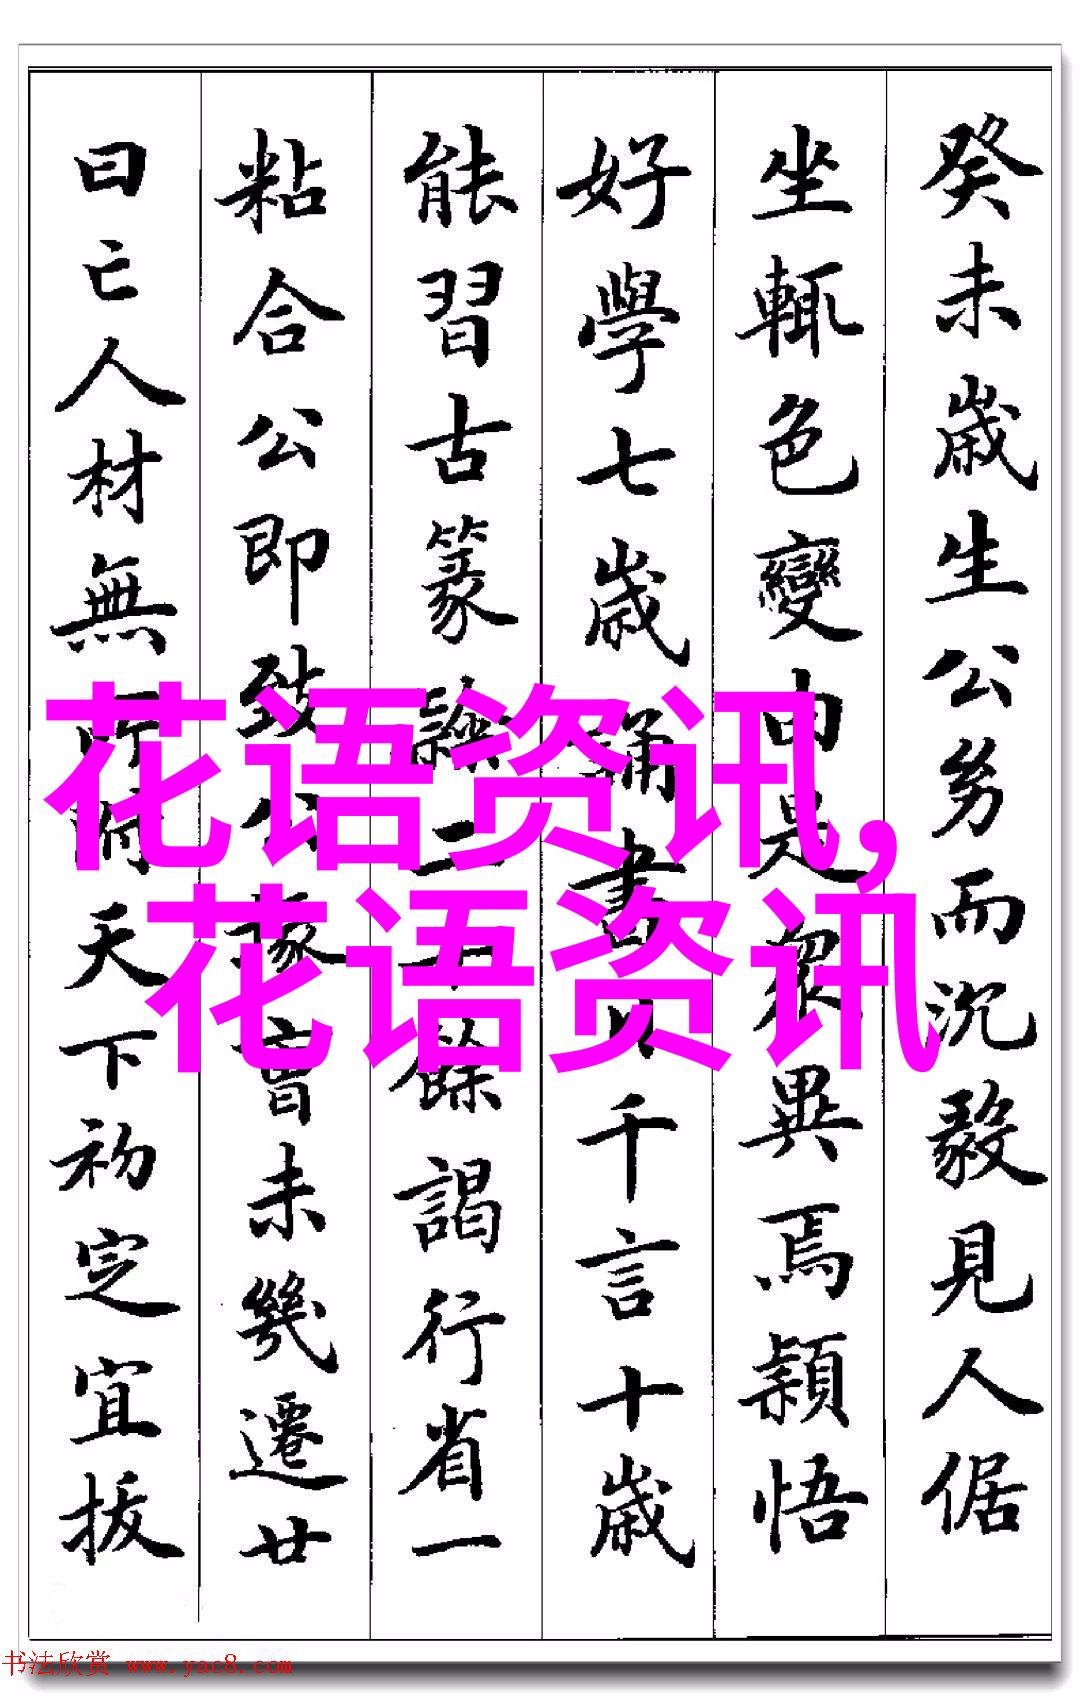 癸未歲生公幼而沉毅見人倨
坐輒色變由是眾異焉穎悟
好學七歲誦書千言十歲
能習古篆二餘謁行省一
粘合公即致未幾遷廿
曰亡人材無天下初定宜拔
花语资讯,
花语资讯
书法欣赏 www.yac8.com